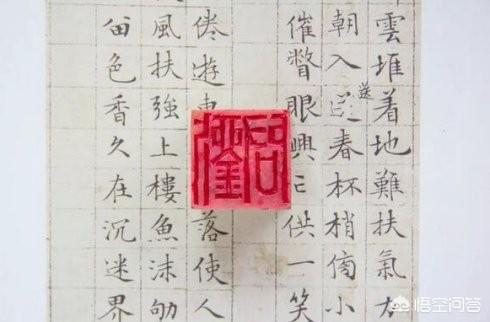 雲堆着地難扶氣
朝入送春杯梢小
送
催瞥眼興亡供一笑
倦遊
落使人
風扶強上樓魚沫
色香久在沉迷界
悟空问答